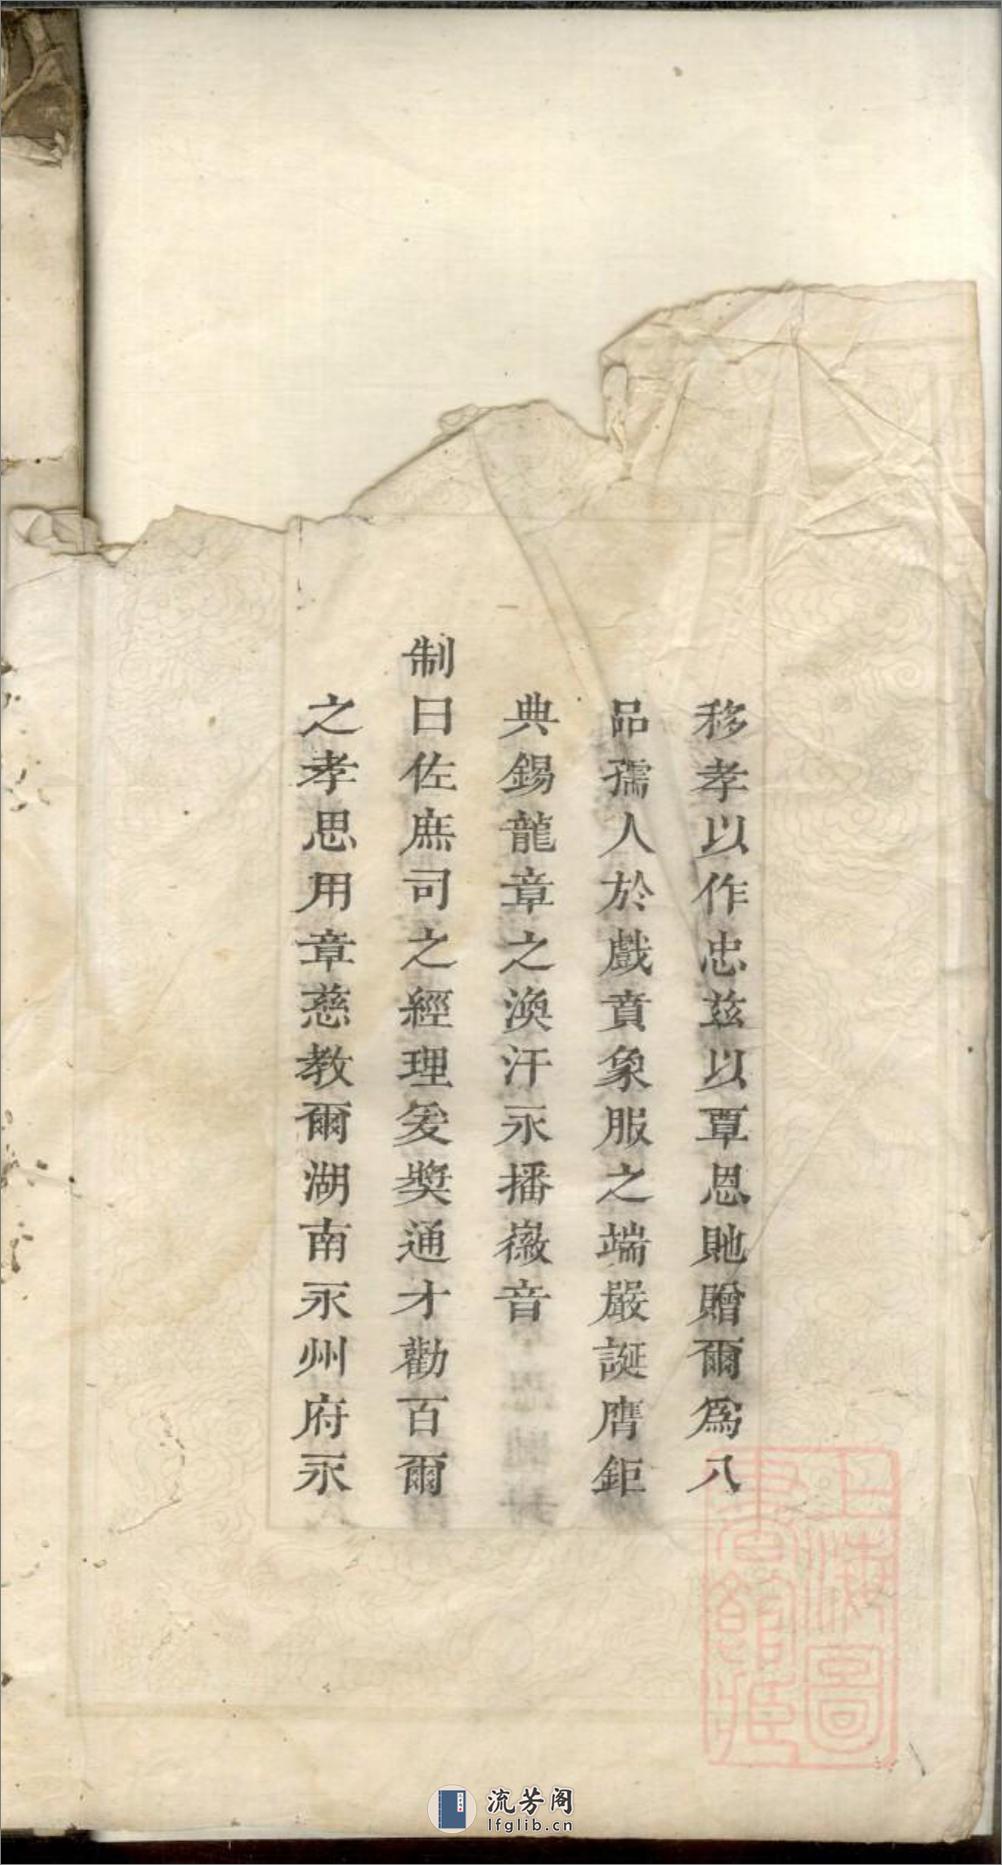 移孝以作忠茲以覃恩貤贈爾爲八
品孺人於戲賁象服之端嚴誕膺鉅
典錫龍章之渙汗永播徽音
制曰佐庶司之經理爰奬通才勸百爾
之孝思用章慈教爾湖南永州府永
上海圖
書館藏
流芳阁
lfglib.cn